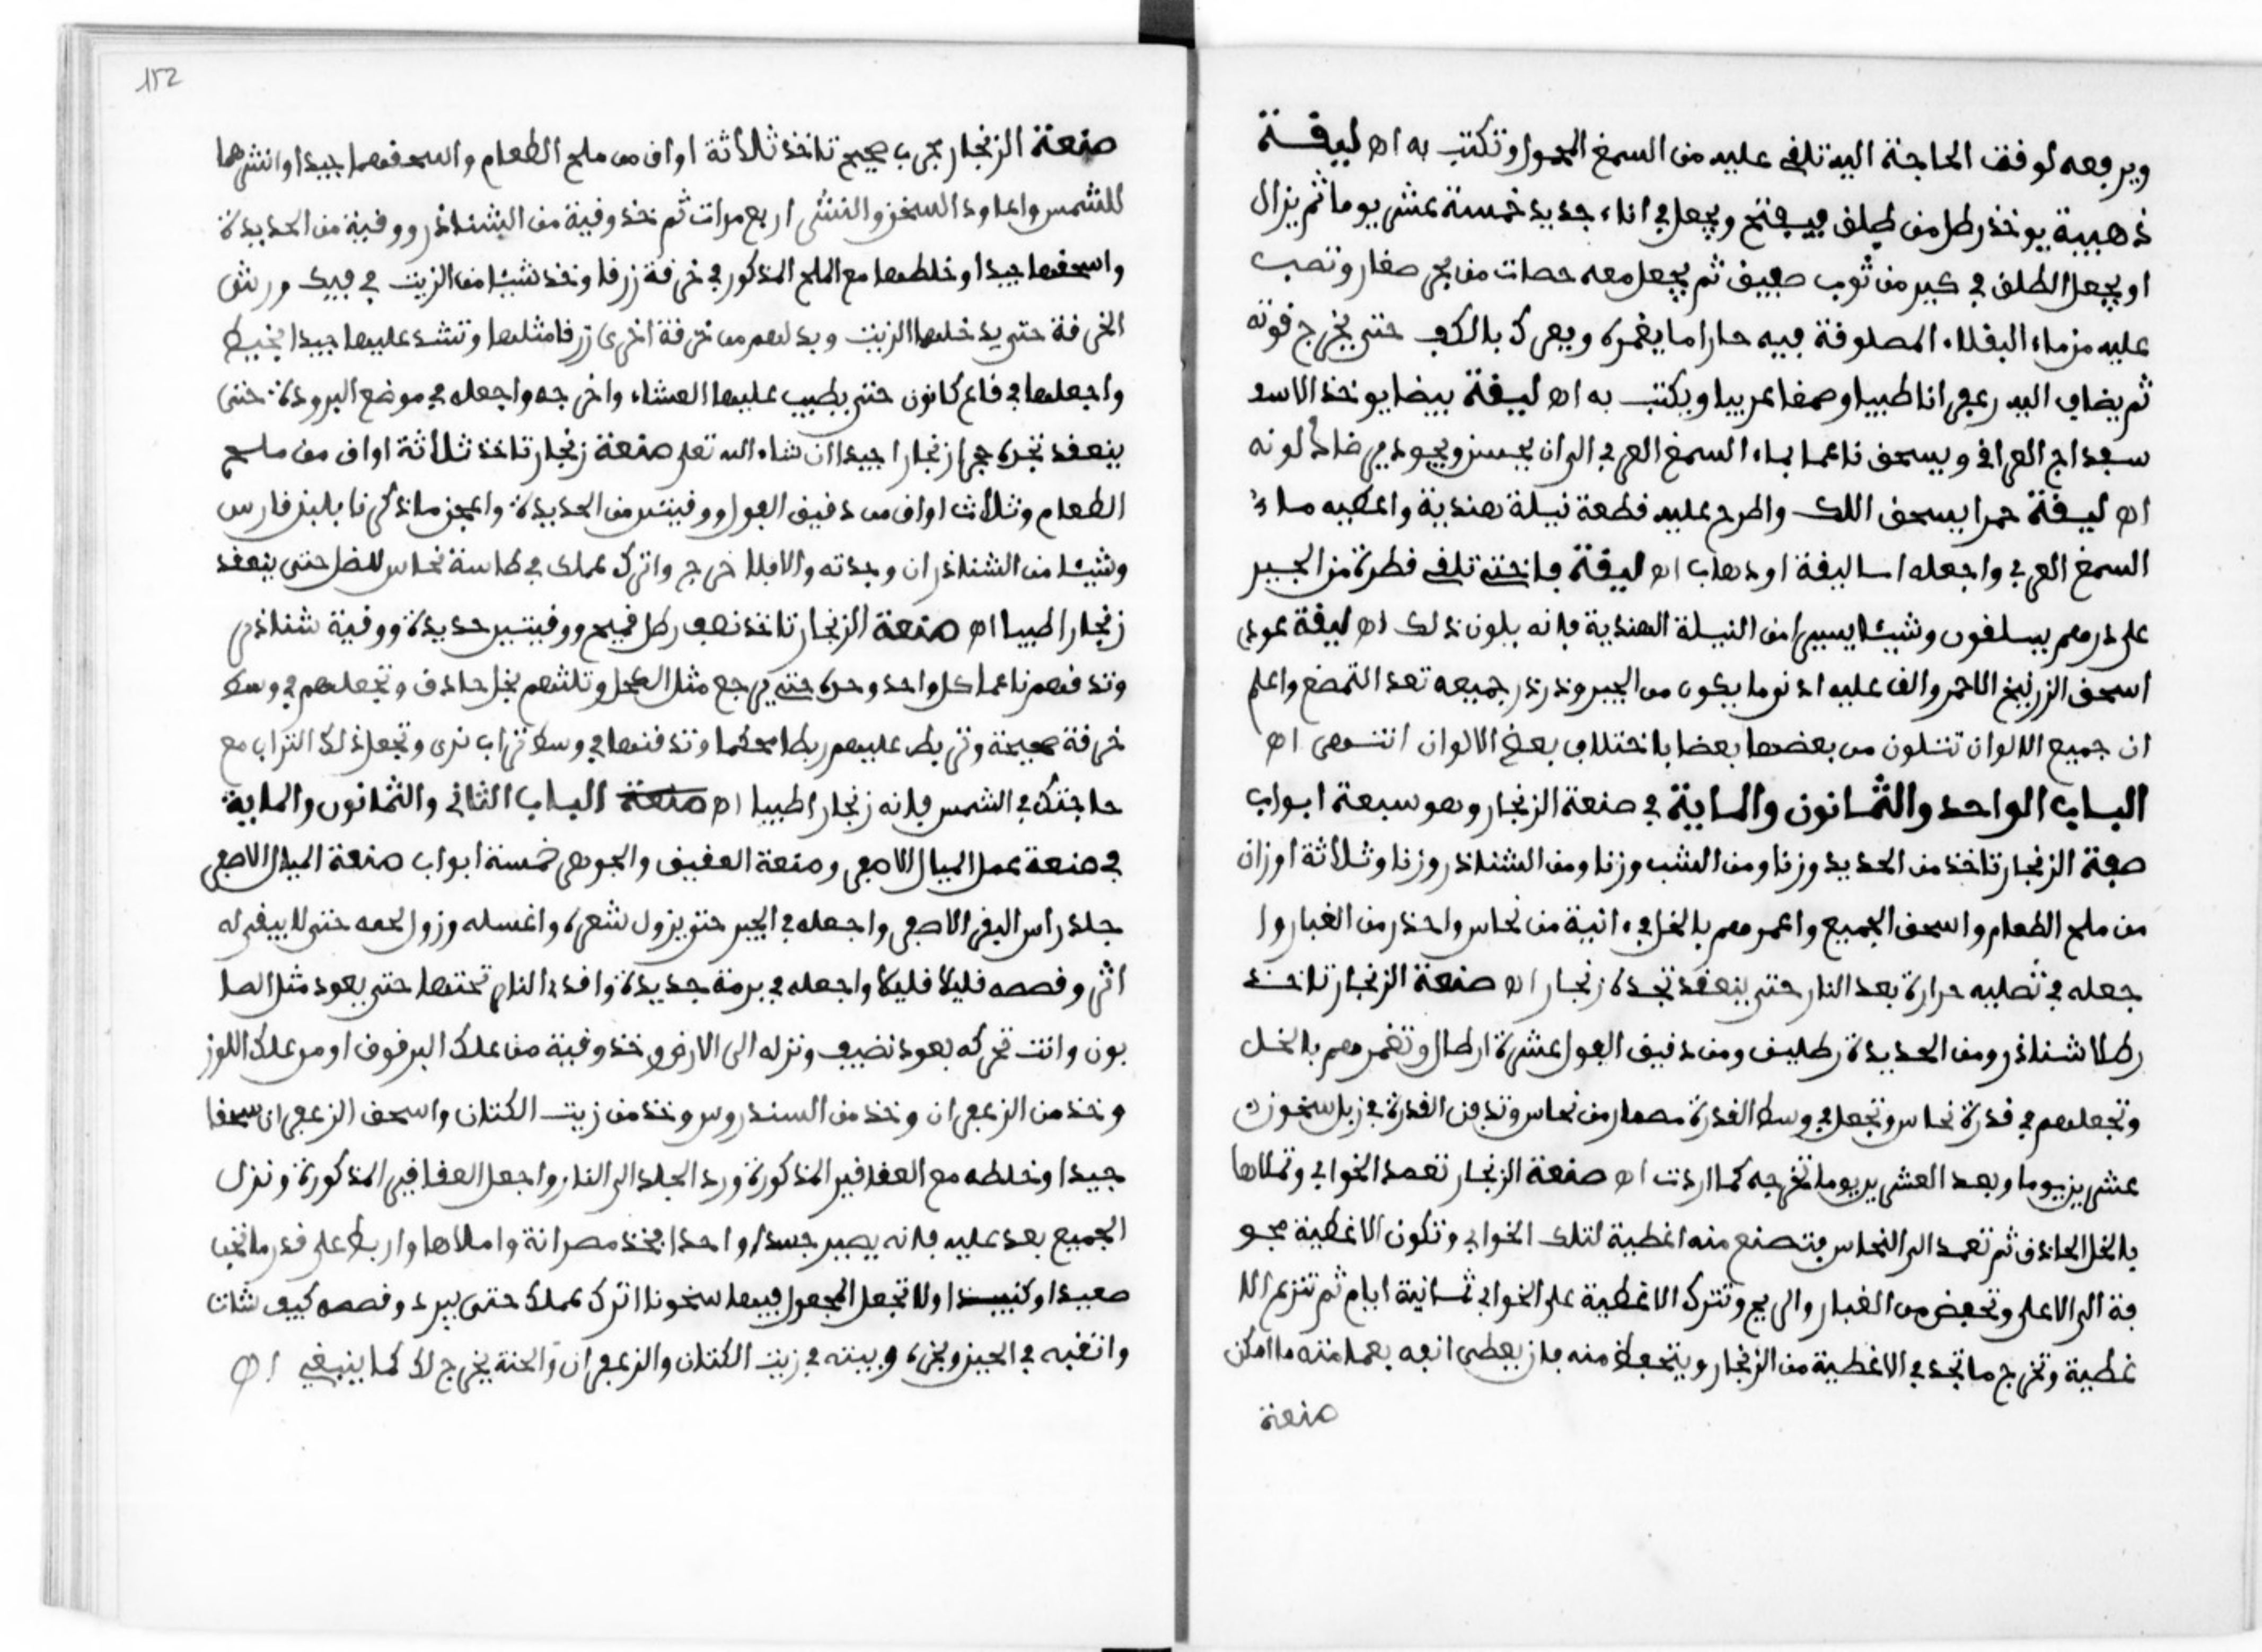 ويرفعه لوقت الحاجة اليه تلقى عليه من السمغ المحمول وتكتب به اه ليقة
ذهبية يوخذ رطل من طلق فيفتح ويجعل في اناء جديد خمسة عشر يوما ثم يزال
او يجعل الطلق في كير من ثوب صفيق ثم يجعل معه حصات من حجر صغار وتصب
عليه من ماء البقلاء المصلوقة فيه حارا ما يغمره ويعرك بالكف حتى يخرج قوته
ثم يضاف اليه زعفرانا طيبا وصمغا عربيا ويكتب به اه ليقة بيضا يوخذ الاسـ
سفداج العراقي ويسحق ناعما بماء السمغ العربي الى ان يحسن ويجود فيرضاك لونه
اه ليقة حمرا يسحق اللك واطرح عليه قطعة نيلة هندية واعطيه ماء
السمغ العربي واجعله اما ليقة او دهاب اه ليقة فاختى تلقى قطرة من الحبير
على درهم يسلقون وشيئا يسيرا من النيلة الهندية فانه يلون ذلك اه ليقة عودي
اسحق الزرنيخ الاحمر والق عليه ادنوما يكون من الحبر وذرذر جميعه تعد التمضغ واعلم
ان جميع الالوان تتلون من بعضها بعضا باختلاف بعض الالوان انتهى اه
الباب الواحد والثمانون والماية في صنعة الزنجار وهو سبعة ابواب
صفة الزنجار تاخذ من الحديد وزنا ومن الشب وزنا ومن الشناذر وزنا وثلاثة اوزان
من ملح الطعام واسحق الجميع واعمرهم بالخل في انية من نحاس واحذر من الغبار وا
جعله في تصليه حرارة بعد النار حتى ينعقد تجده زنجار اه صنعة الزنجار تاخذ
رطلا شناذر ومن الحديدة رطلين ومن دقيق الفول عشرة ارطال وتغمرهم بالخل
وتجعلهم في قدرة نحاس وتجعل في وسط القدرة مصمار من نحاس وتدفن القدرة في زبل سخون
عشرين يوما وبعد العشرين يوما تخرجه كما اردت اه صنعة الزنجار تعمد الخوابي وتملاها
بالخل الحاذق ثم تعمد الى النحاس فتصنع منه اغطية لتلك الخوابي وتكون الاغطية مجو
فة الى الاعلى وتحفض من الغبار والريح وتترك الاغطية على الخوابي ثمانية ايام ثم تنزع الا
غطية وتخرج ما تجد في الاغطية من الزنجار ويتحفظ منه فان يعطى انفه يعمل منه ما امكن
صنعة
152
صنعة الزنجار مجرب صحيح تاخذ ثلاثة اواق من ملح الطعام واسحقهما جيدا وانشرهما
للشمس واعاود السخن والنشر اربع مرات ثم خذ وقية من الشناذر ووقية من الحديدة
واسحقها جيدا وخلطها مع الملح المذكور في خرقة زرقا وخذ شيئا من الزيت في فيك ورش
الخرقة حتى يدخلها الزيت وبدلهم من خرقة اخرى زرقا مثلها وتشد عليها جيدا بخيط
واجعلها في قاع كانون حتى يطيب عليها العشاء واخرجه واجعله في موضع البرودة حتى
ينعقد تجده زنجارا جيدا ان شاء الله تعلى صنعة زنجار تاخذ ثلاثة اواق من ملح
الطعام وثلاث اواق من دقيق الفول ووقيتين من الحديدة واعجن ماذكرنا بلبن قارس
وشيئا من الشناذر ان وجدته والا فلا حرج واترك عملك في طاسة نحاس للضل حتى ينعقد
زنجارا طيبا اه صنعة الزنجار تاخذ نصف رطل قميح ووقيتين حديدة ووقية شناذر
وتدقهم ناعما كل واحد وحده حتى يرجع مثل الكحل وتلثهم بخل حاذق وتجعلهم في وسط
خرقة صحيحة وتربط عليهم ربطا محكما وتدفنها في وسط تراب ندى وتجعل ذلك التراب مع
حاجتك في الشمس فانه زنجارا طيبا اه صنعة الباب الثاني والثمانون والماية
في صنعة عمل الميال الاصفر وصنعة العقيق والجوهر خمسة ابواب صنعة الميال الاصفر
جلد راس البقر الاصفر واجعله في الجير حتى يزول شعره واغسله وزول لحمه حتى لا يبقى له
اثر وقصصه قليلا قليلا واجعله في برمة جديدة واقد النار تحتها حتى يعود مثل الصا
بون وانت تحركه بعود نضيف ونزله الى الارض وخذ وقية من علك البرقوق او من علك اللوز
وخذ من الزعفران وخذ من السندروس وخذ من زيت الكتان واسحق الزعفران سحقا
جيدا وخلطه مع العقاقير المذكورة ورد الجلد الى النار واجعل العقاقير المذكورة ونزل
الجميع بعد عليه فانه يصير جسدا واحدا فخذ مصرانة واملاها واربط على قدر ما تحب
صعيدا وكنبيدا ولا تجعل المجعول فيها سخونا اترك عملك حتى يبرد وقصصه كيف شات
واثقبه في الحين ويخره وبيته في زيت الكتان والزعفران والحنة يخرج لك كما ينبغي اه